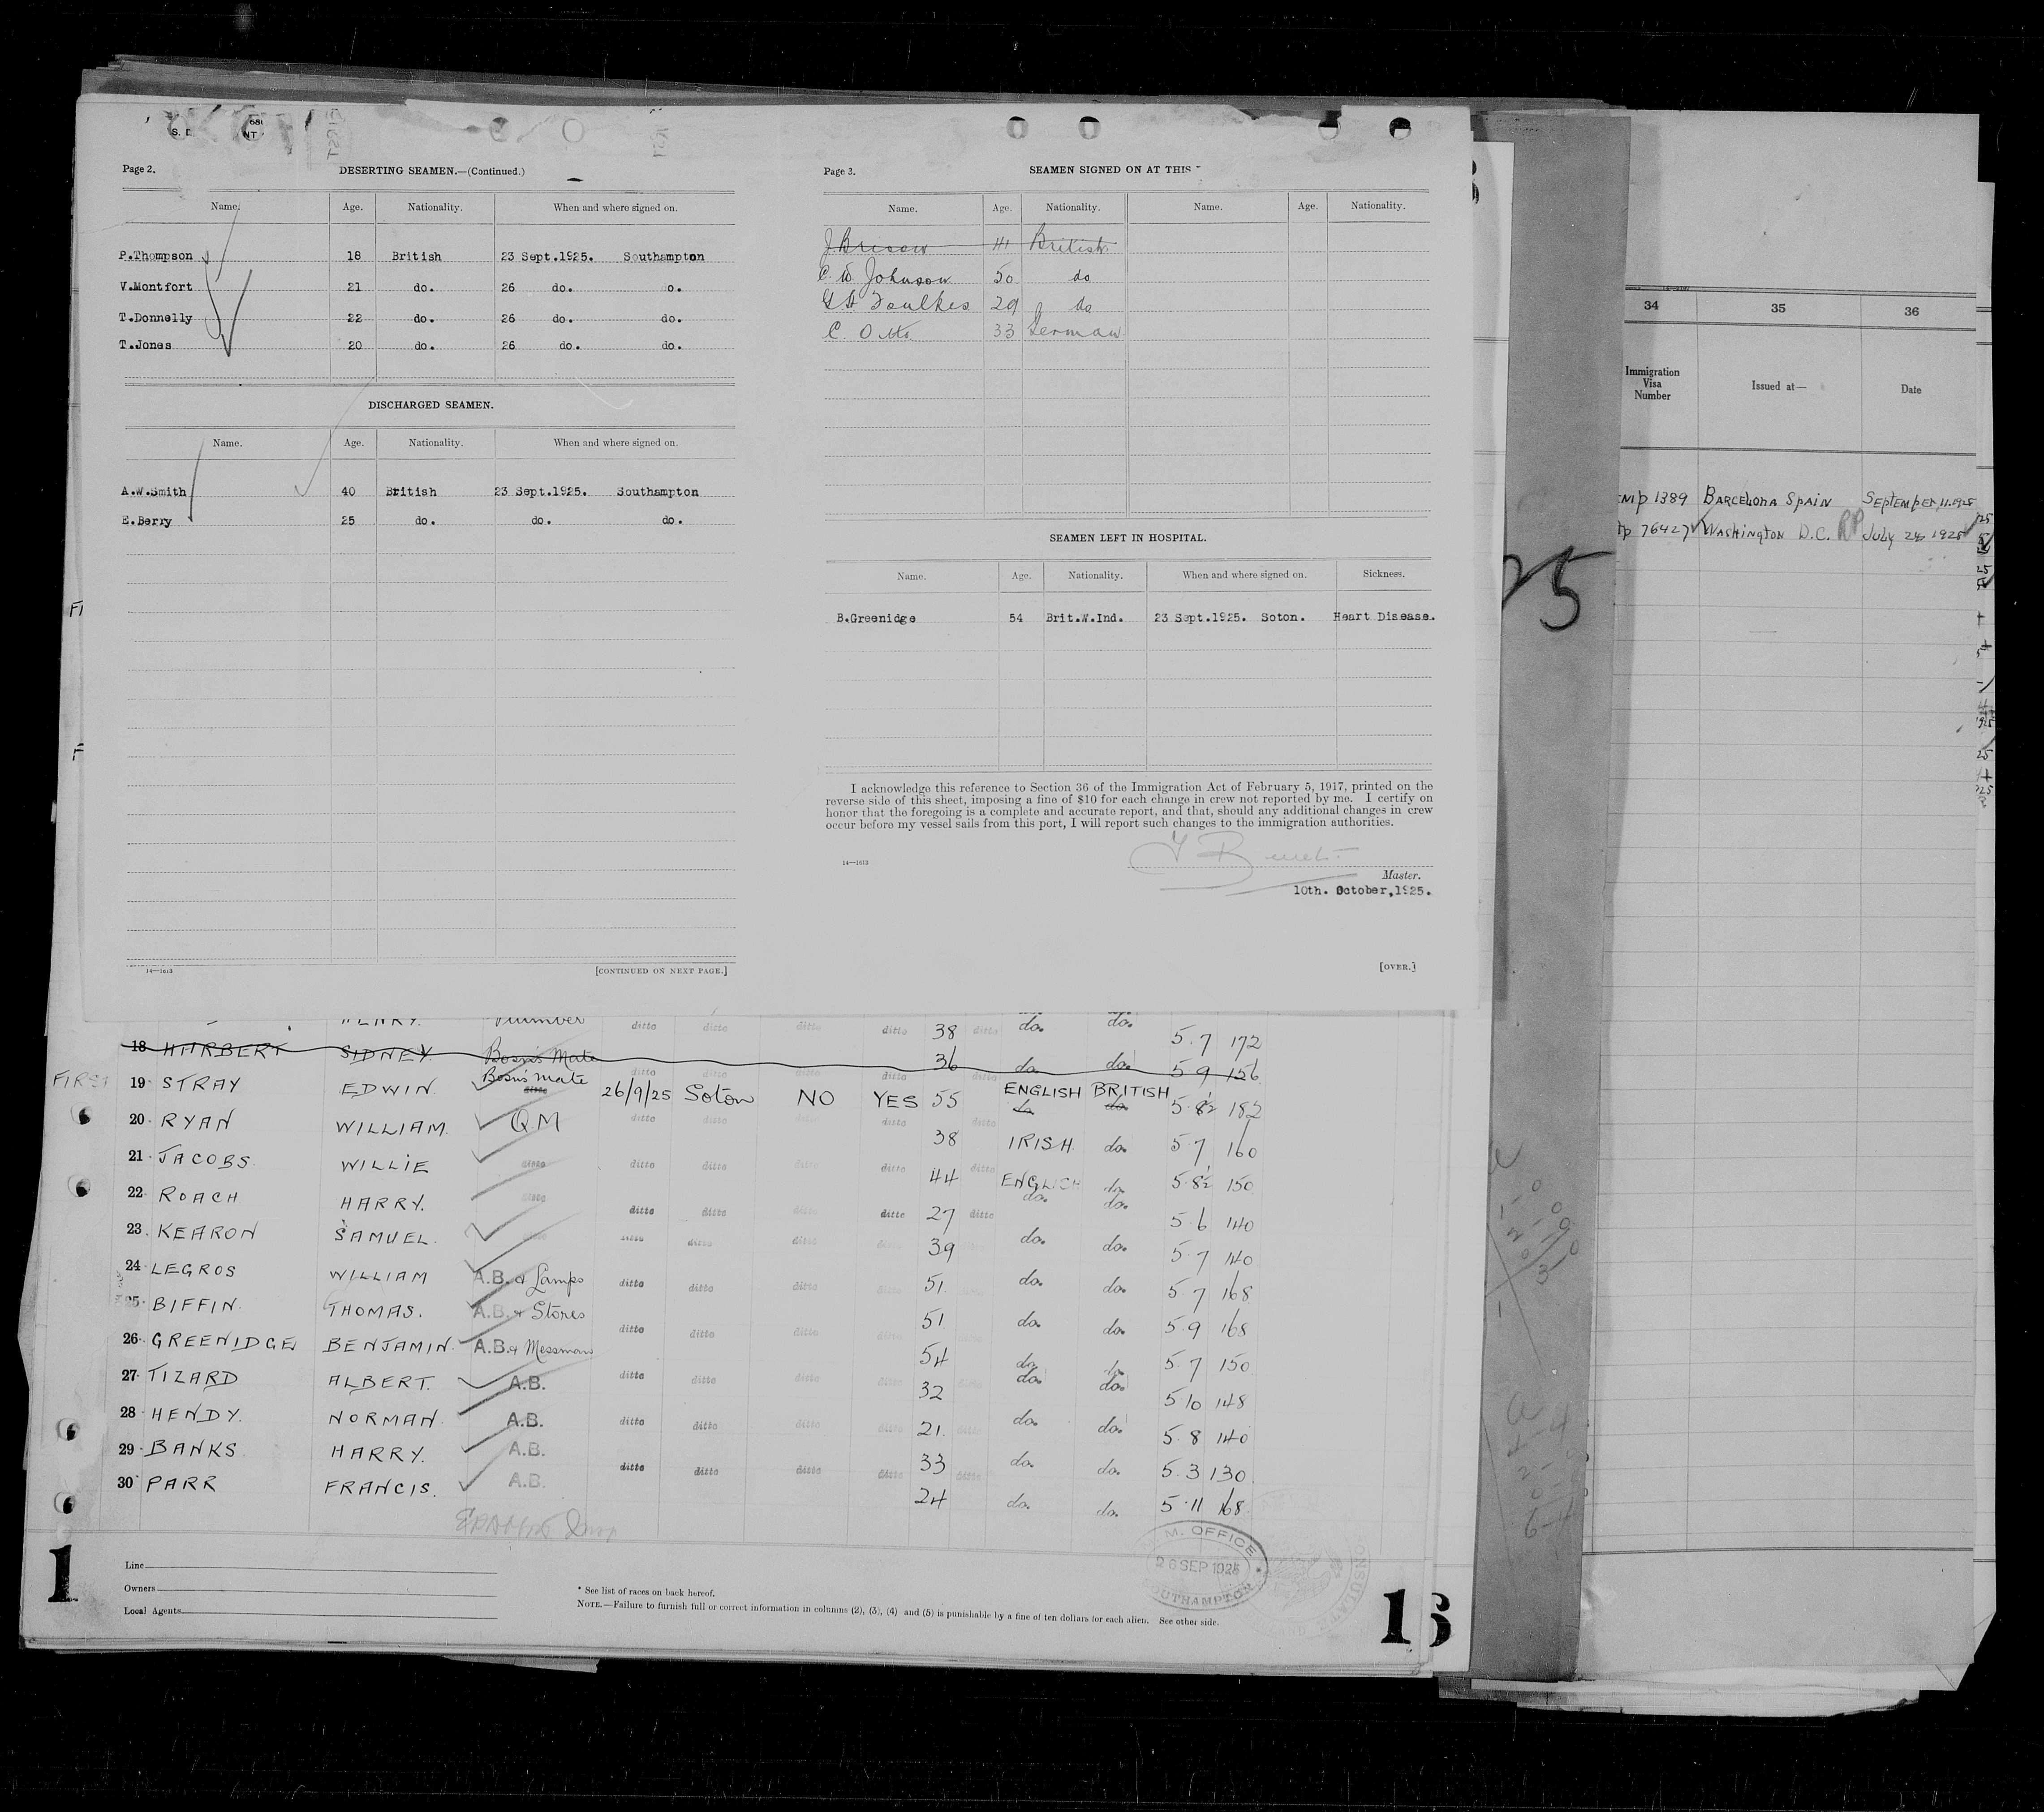 Page 2.
DESERTING SEAMEN.—(Continued.)
Name. Age. Nationality. When and where signed on.
P.Thompson 18 British 23 Sept.1925. Southampton
V.Montfort 21 do. 26 do. o.
T.Donnelly 22 do. 26 do. do.
T.Jones 20 do. 26 do. do.
DISCHARGED SEAMEN.
Name. Age. Nationality. When and where signed on.
A.W.Smith 40 British 23 Sept.1925. Southampton
E.Berry 25 do. do. do.
14—1613
[CONTINUED ON NEXT PAGE.]
Page 3.
SEAMEN SIGNED ON AT THIS
Name. Age. Nationality. Name. Age. Nationality.
41 British
C. W Johnson 50 do
G H Foulkes 29 do
C. Otto 33 German
SEAMEN LEFT IN HOSPITAL.
Name. Age. Nationality. When and where signed on. Sickness.
B.Greenidge 54 Brit.W.Ind. 23 Sept.1925. Soton. Heart Disease.
I acknowledge this reference to Section 36 of the Immigration Act of February 5, 1917, printed on the
reverse side of this sheet, imposing a fine of $10 for each change in crew not reported by me. I certify on
honor that the foregoing is a complete and accurate report, and that, should any additional changes in crew
occur before my vessel sails from this port, I will report such changes to the immigration authorities.
14—1613
Master.
10th. October,1925.
[OVER.]
34 35 36
Immigration Visa Number
Issued at—
Date
1389 BARCELONA SPAIN SEPTEMBER 11.1925
76427 WASHINGTON D.C. RP JULY 24 1925
25
HENRY. Plumber ditto ditto ditto ditto 38 ditto do. do. 5.7 172
18 HARBERT SIDNEY. Bosn's Mate ditto ditto ditto ditto 36 ditto do. do. 5 9 156
FIRST 19 STRAY EDWIN. Bosn's Mate ditto 26/9/25 Soton NO YES 55 ENGLISH BRITISH do. do. 5.8½ 182
20 RYAN WILLIAM. QM ditto ditto ditto 38 ditto IRISH. do. 5.7 160
21 JACOBS. WILLIE ditto ditto ditto ditto ditto 44 ditto ENGLISH do. 5.8½ 150
22 ROACH HARRY. ditto ditto ditto ditto ditto 27 ditto do. do. 5.6 140
23 KEARON SAMUEL. ditto ditto ditto ditto 39 do. do. 5.7 140
24 LEGROS WILLIAM A.B. & Lamps ditto ditto ditto ditto 51 do. do. 5.7 168
25 BIFFIN. THOMAS. A.B. & Stores ditto ditto ditto ditto 51 do. do. 5.9 168
26 GREENIDGE BENJAMIN. A.B. & Messman 54 do. do. 5.7 150
27 TIZARD ALBERT. A.B. ditto ditto ditto ditto 32 do. do. 5 10 148
28 HENDY. NORMAN. A.B. ditto ditto ditto ditto 21. do. do. 5.8 140
29 BANKS. HARRY. A.B. ditto ditto ditto ditto 33 do. do. 5.3 130
30 PARR FRANCIS. A.B. 24 do. do. 5.11 168.
1
Line
Owners
Local Agents
* See list of races on back hereof.
NOTE.—Failure to furnish full or correct information in columns (2), (3), (4) and (5) is punishable by a fine of ten dollars for each alien. See other side.
M. OFFICE
26 SEP 1925
SOUTHAMPTON
16